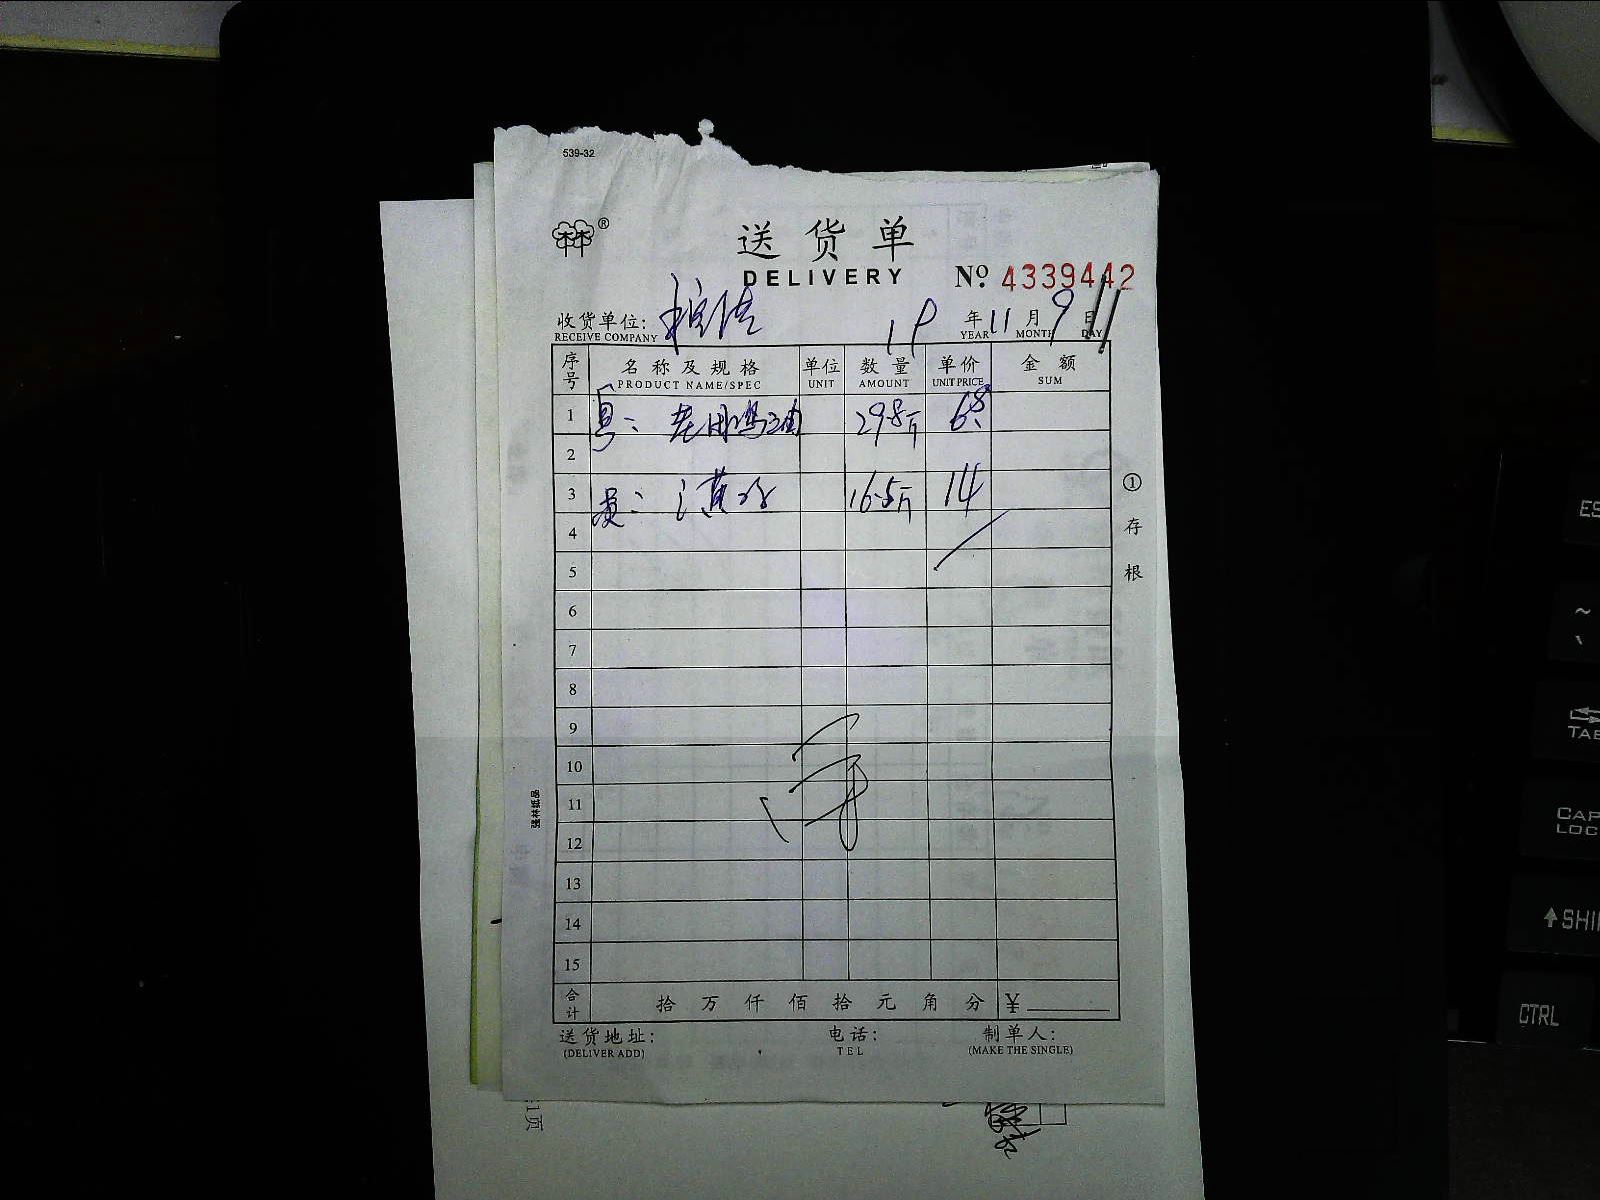 539-32
林®
送货单
DELIVERY
№ 4339442
收货单位:
RECEIVE COMPANY
19 年 11 月 9 日
YEAR MONTH DAY
序号 名称及规格 单位 数量 单价 金额
PRODUCT NAME/SPEC UNIT AMOUNT UNIT PRICE SUM
1 298斤 68
2
3 16.5斤 14
4
5
6
7
8
9
10
11
12
13
14
15
合计 拾 万 仟 佰 拾 元 角 分 ¥
送货地址: 电话: 制单人:
(DELIVER ADD) TEL (MAKE THE SINGLE)
① 存根
强林纸品
1页
ES
~
TAB
CAP
LOC
SHI
CTRL